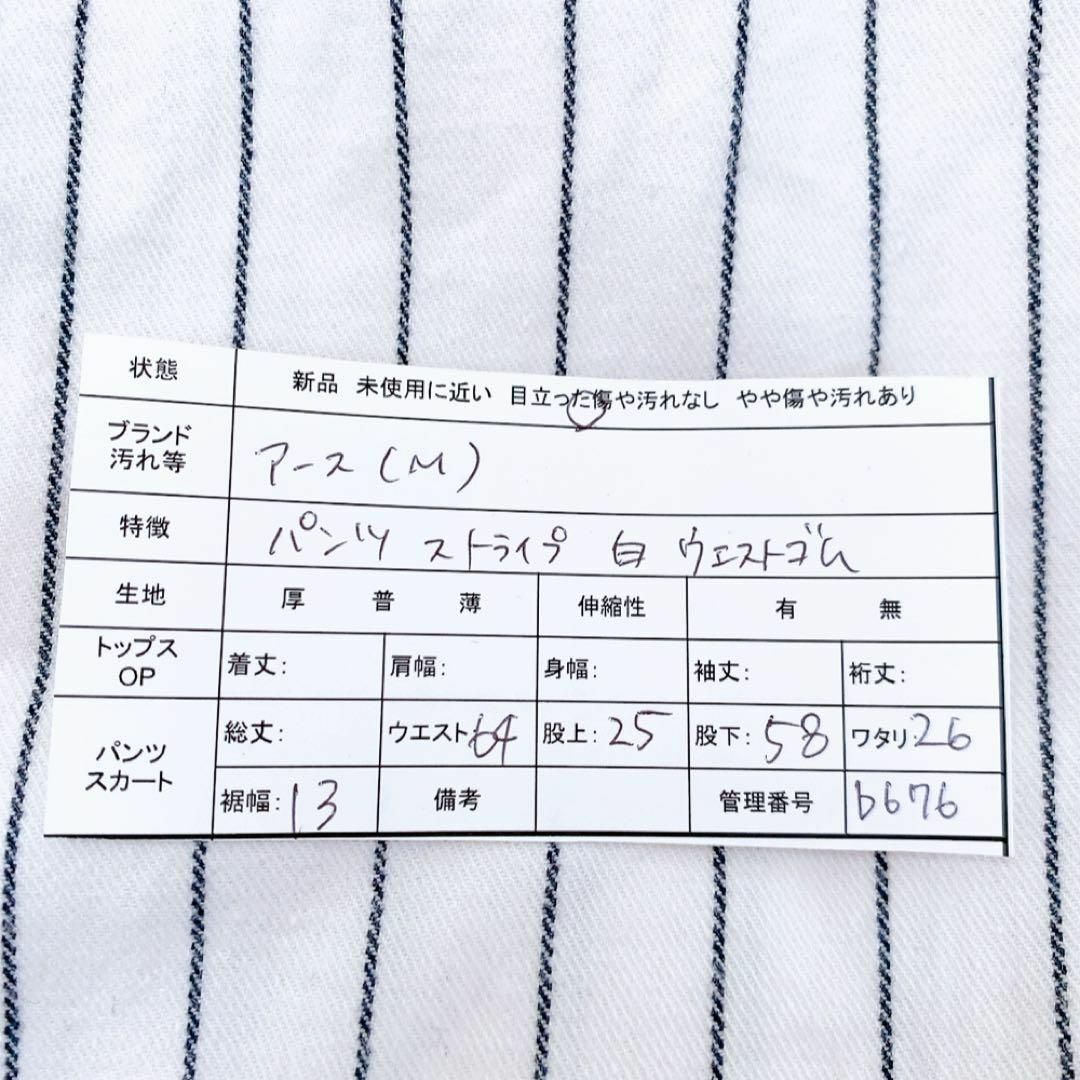 状態 新品 未使用に近い 目立った傷や汚れなし やや傷や汚れあり
ブランド
汚れ等 アース(M)
特徴 パンツ ストライプ 白 ウエストゴム
生地 厚 普 薄 伸縮性 有 無
トップス
OP 着丈: 肩幅: 身幅: 袖丈: 裄丈:
パンツ
スカート 総丈: ウエスト64 股上:25 股下:58 ワタリ:26
裾幅:13 備考 管理番号 b676